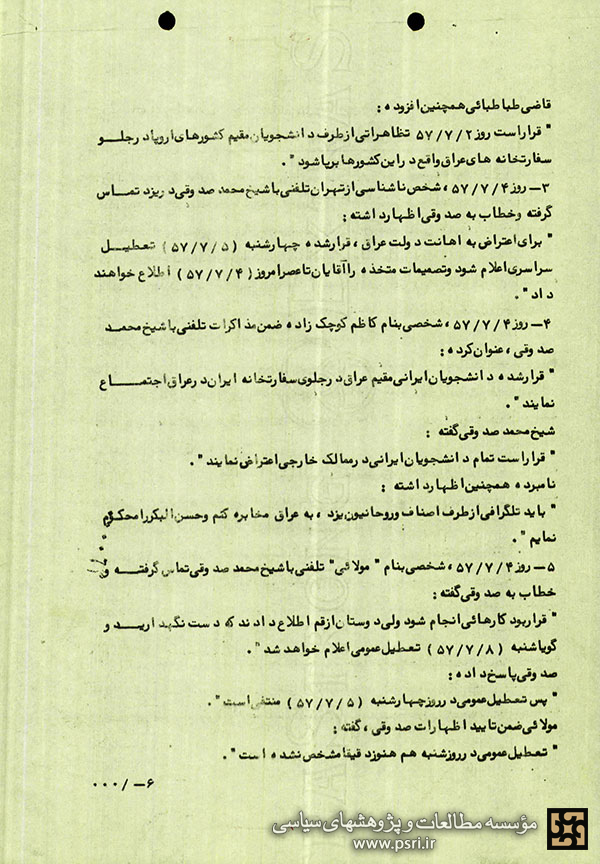 قاضی طباطبائی همچنین افزوده :
" قرار است روز ۵۷/۷/۲ تظاهراتی از طرف دانشجویان مقیم کشورهای اروپا در جلو
سفارتخانه های عراق واقع در این کشورها برپا شود " .
۳ــ روز ۵۷/۷/۴ ، شخص ناشناسی از تهران تلفنی با شیخ محمد صدوقی در یزد تماس
گرفته و خطاب به صدوقی اظهار داشته :
" برای اعتراض به اهانت دولت عراق ، قرار شده چهارشنبه ( ۵۷/۷/۵ ) تعطیل
سراسری اعلام شود و تصمیمات متخذه را آقایان تا عصر امروز ( ۵۷/۷/۴ ) اطلاع خواهند
داد " .
۴ــ روز ۵۷/۷/۴ ، شخصی بنام کاظم کوچک زاده ضمن مذاکرات تلفنی با شیخ محمد
صدوقی ، عنوان کرده :
" قرار شده دانشجویان ایرانی مقیم عراق در جلوی سفارتخانه ایران در عراق اجتماع
نمایند " .
شیخ محمد صدوقی گفته :
" قرار است تمام دانشجویان ایرانی در ممالک خارجی اعتراض نمایند " .
نامبرده همچنین اظهار داشته :
" باید تلگرافی از طرف اصناف و روحانیون یزد ، به عراق مخابره کنم و حسن البکر را محکوم
نمایم " .
۵ــ روز ۵۷/۷/۴ ، شخصی بنام " مولائی " تلفنی با شیخ محمد صدوقی تماس گرفته و
خطاب به صدوقی گفته :
" قرار بود کارهائی انجام شود ولی دوستان از قم اطلاع دادند که دست نگهدارید و
گویا شنبه ( ۵۷/۷/۸ ) تعطیل عمومی اعلام خواهد شد " .
صدوقی پاسخ داده :
" پس تعطیل عمومی در روز چهارشنبه ( ۵۷/۷/۵ ) منتفی است " .
مولائی ضمن تایید اظهارات صدوقی ، گفته :
" تعطیل عمومی در روز شنبه هم هنوز دقیقا مشخص نشده است " .
۶ــ /۰۰۰
مؤسسه مطالعات و پژوهشهای سیاسی
www.psri.ir